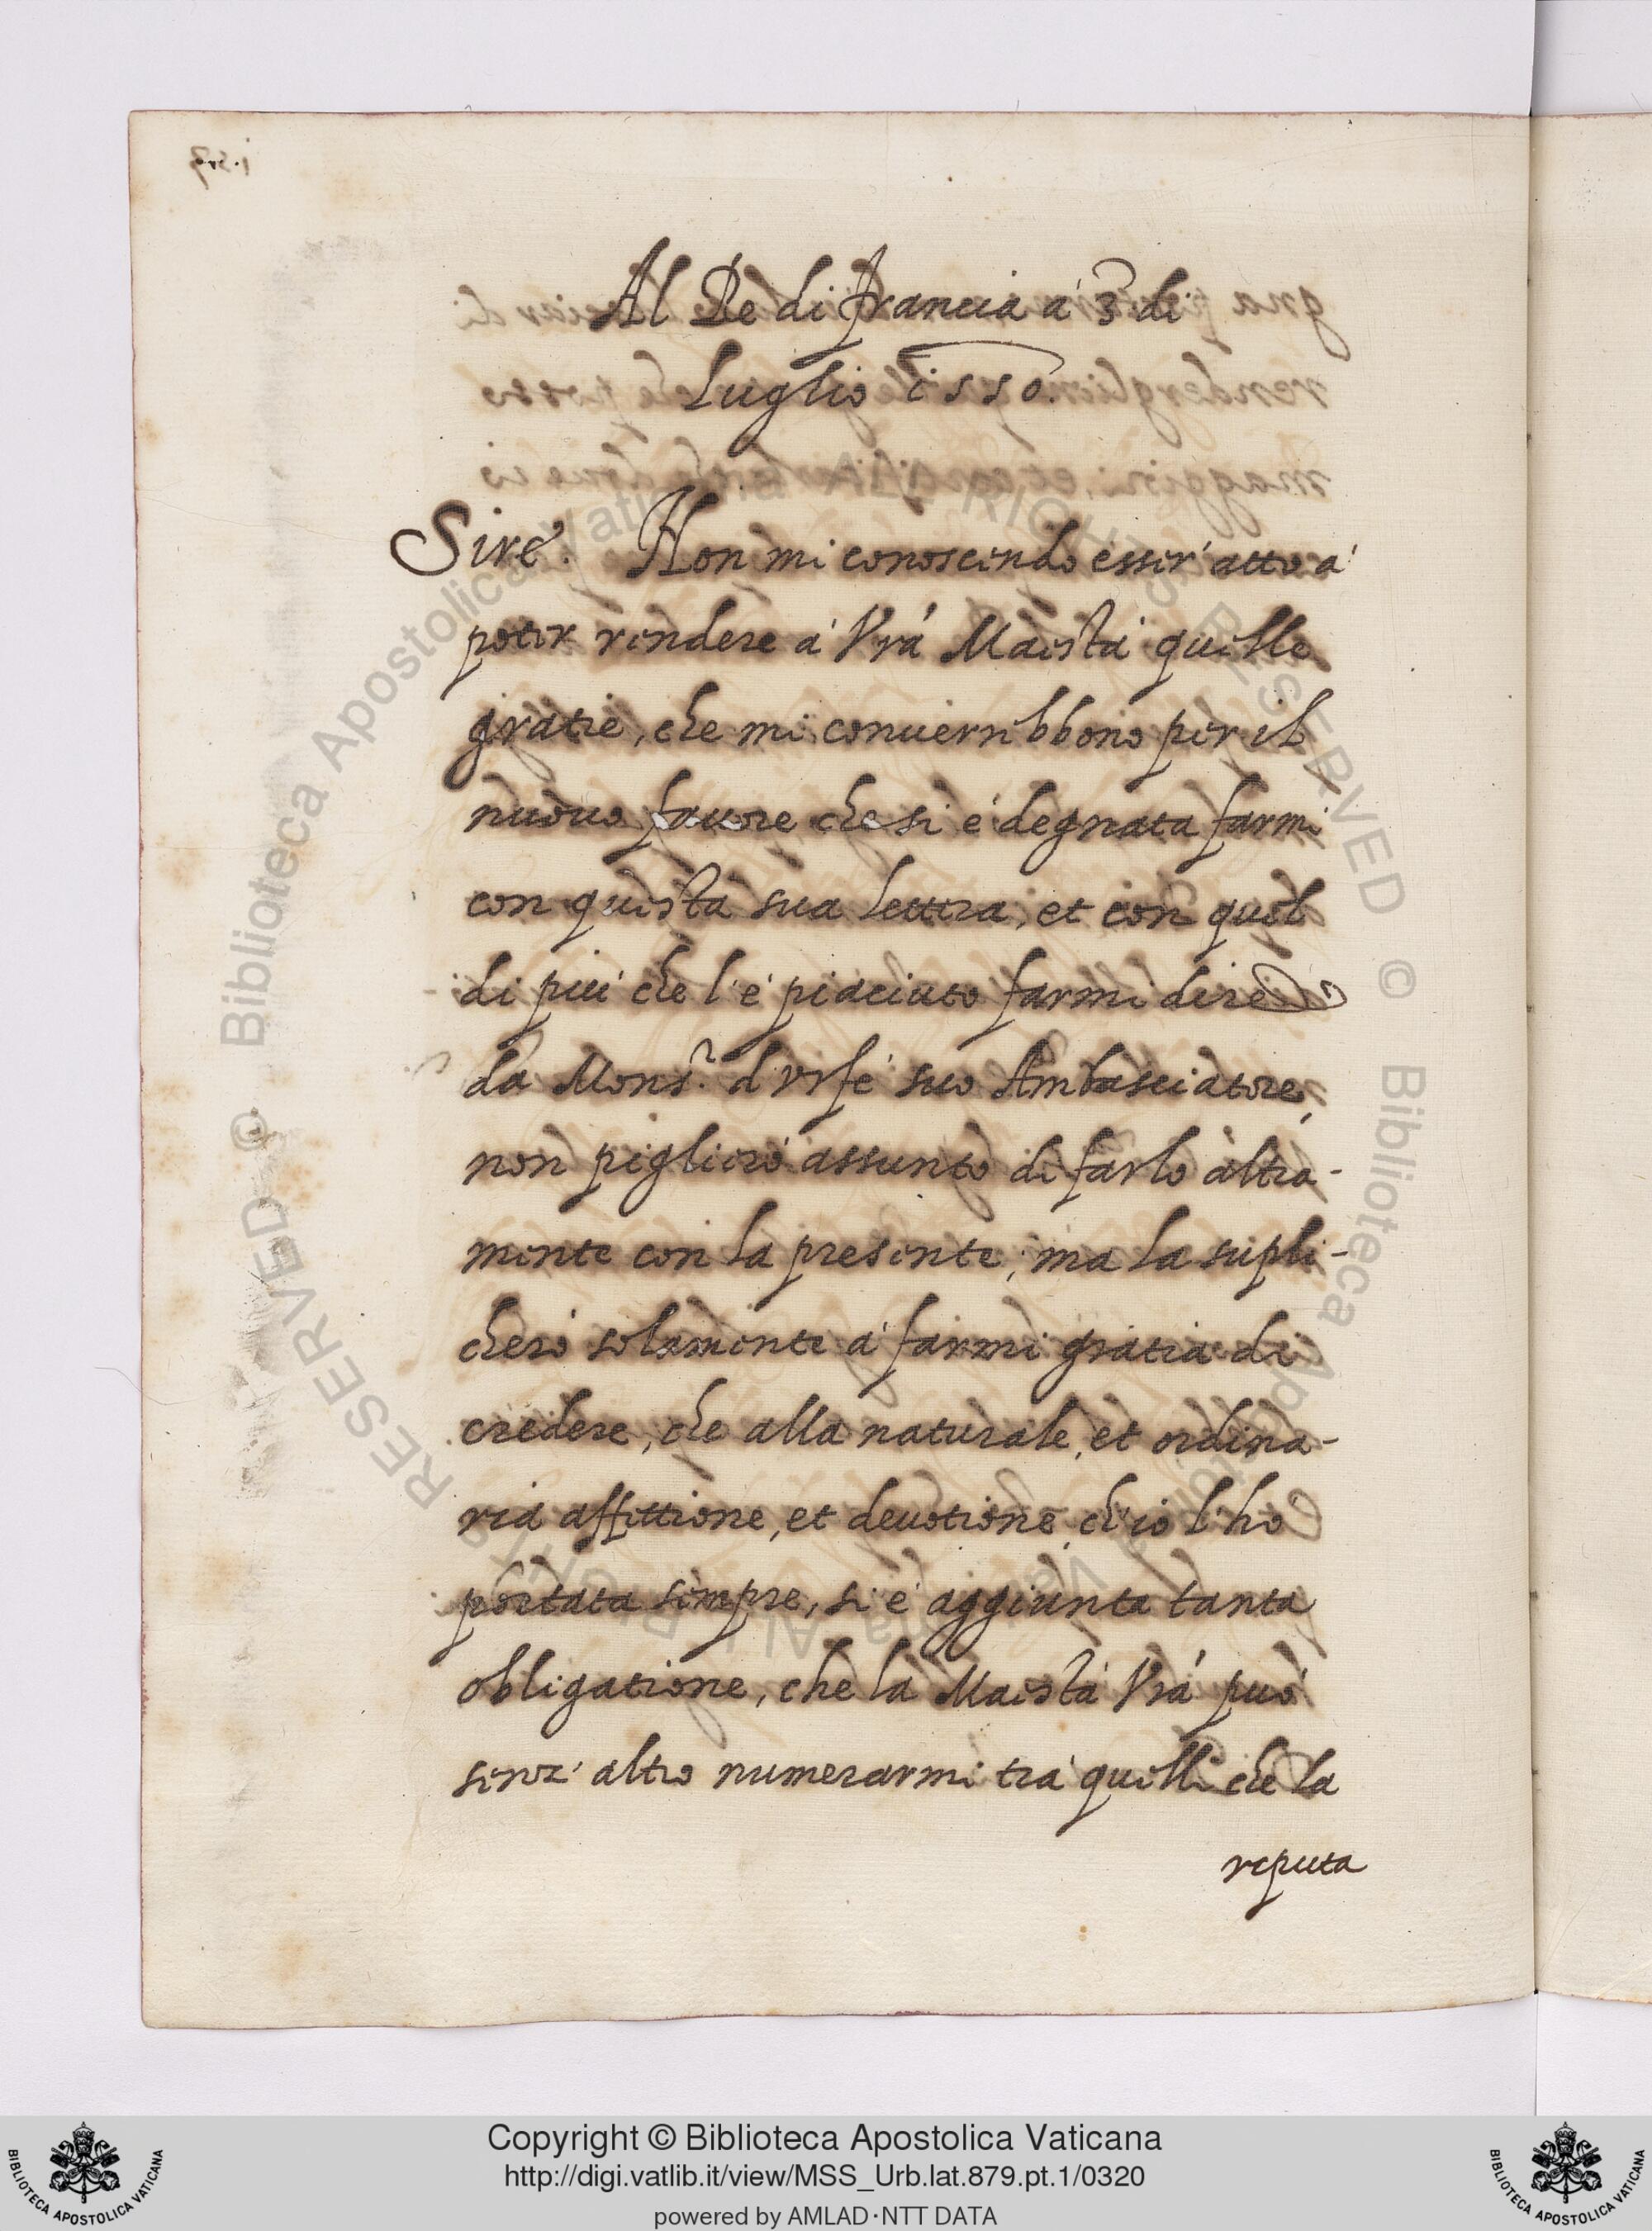 Al Re di Francia a' 3 di
Luglio i550.
Sire. Non mi conoscendo esser' atto a'
poter rendere a' Vrá Maestá quelle
gratie, che mi conuerrebbono per il
nuouo fauore che si é degnata farmi
con questa sua lettera, et con quel
di piú che l'é piaciuto farmi dire
da Mons.r d'Vrfé suo Ambasciatore,
non piglieró assunto di farlo altra-
mente con la presente; ma la supli-
cheró solamente a' farmi gratia di
credere, che alla naturale, et ordina-
ria affettione, et deuotione, ch'io l'ho
portata sempre, si é aggiunta tanta
obligatione, che la Maestá Vrá puó
senz' altro numerarmi tra' quelli che la
reputa
Copyright © Biblioteca Apostolica Vaticana
http://digi.vatlib.it/view/MSS_Urb.lat.879.pt.1/0320
powered by AMLAD·NTT DATA
BIBLIOTECA APOSTOLICA VATICANA
BIBLIOTECA APOSTOLICA VATICANA